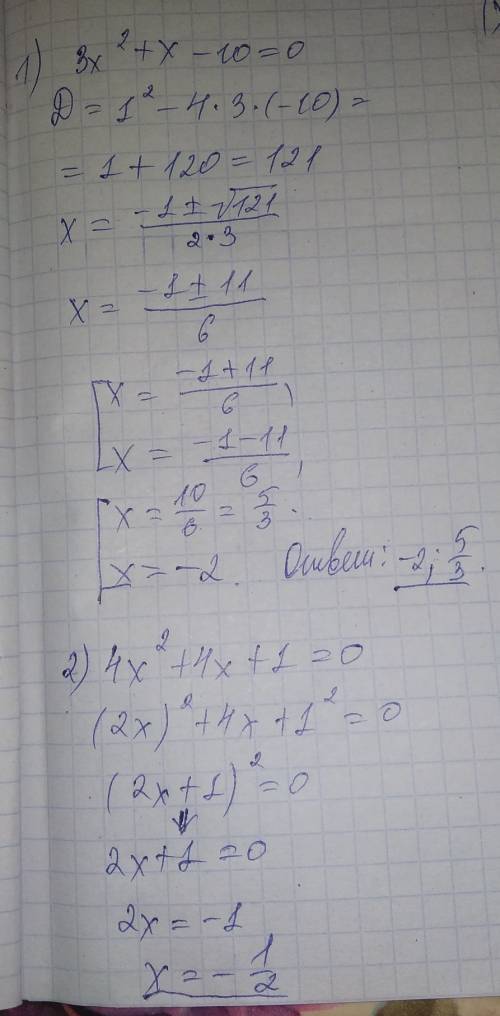 1) 3x² + x - 10 = 0
D = 1² - 4 · 3 · (-10) =
= 1 + 120 = 121
x = (-1 ± √121)/(2·3)
x = (-1 ± 11)/6
[ x = (-1 + 11)/6,
x = (-1 - 11)/6,
[ x = 10/6 = 5/3.
x = -2. Ответ: -2; 5/3.
2) 4x² + 4x + 1 = 0
(2x)² + 4x + 1² = 0
(2x + 1)² = 0
⇓
2x + 1 = 0
2x = -1
x = - 1/2